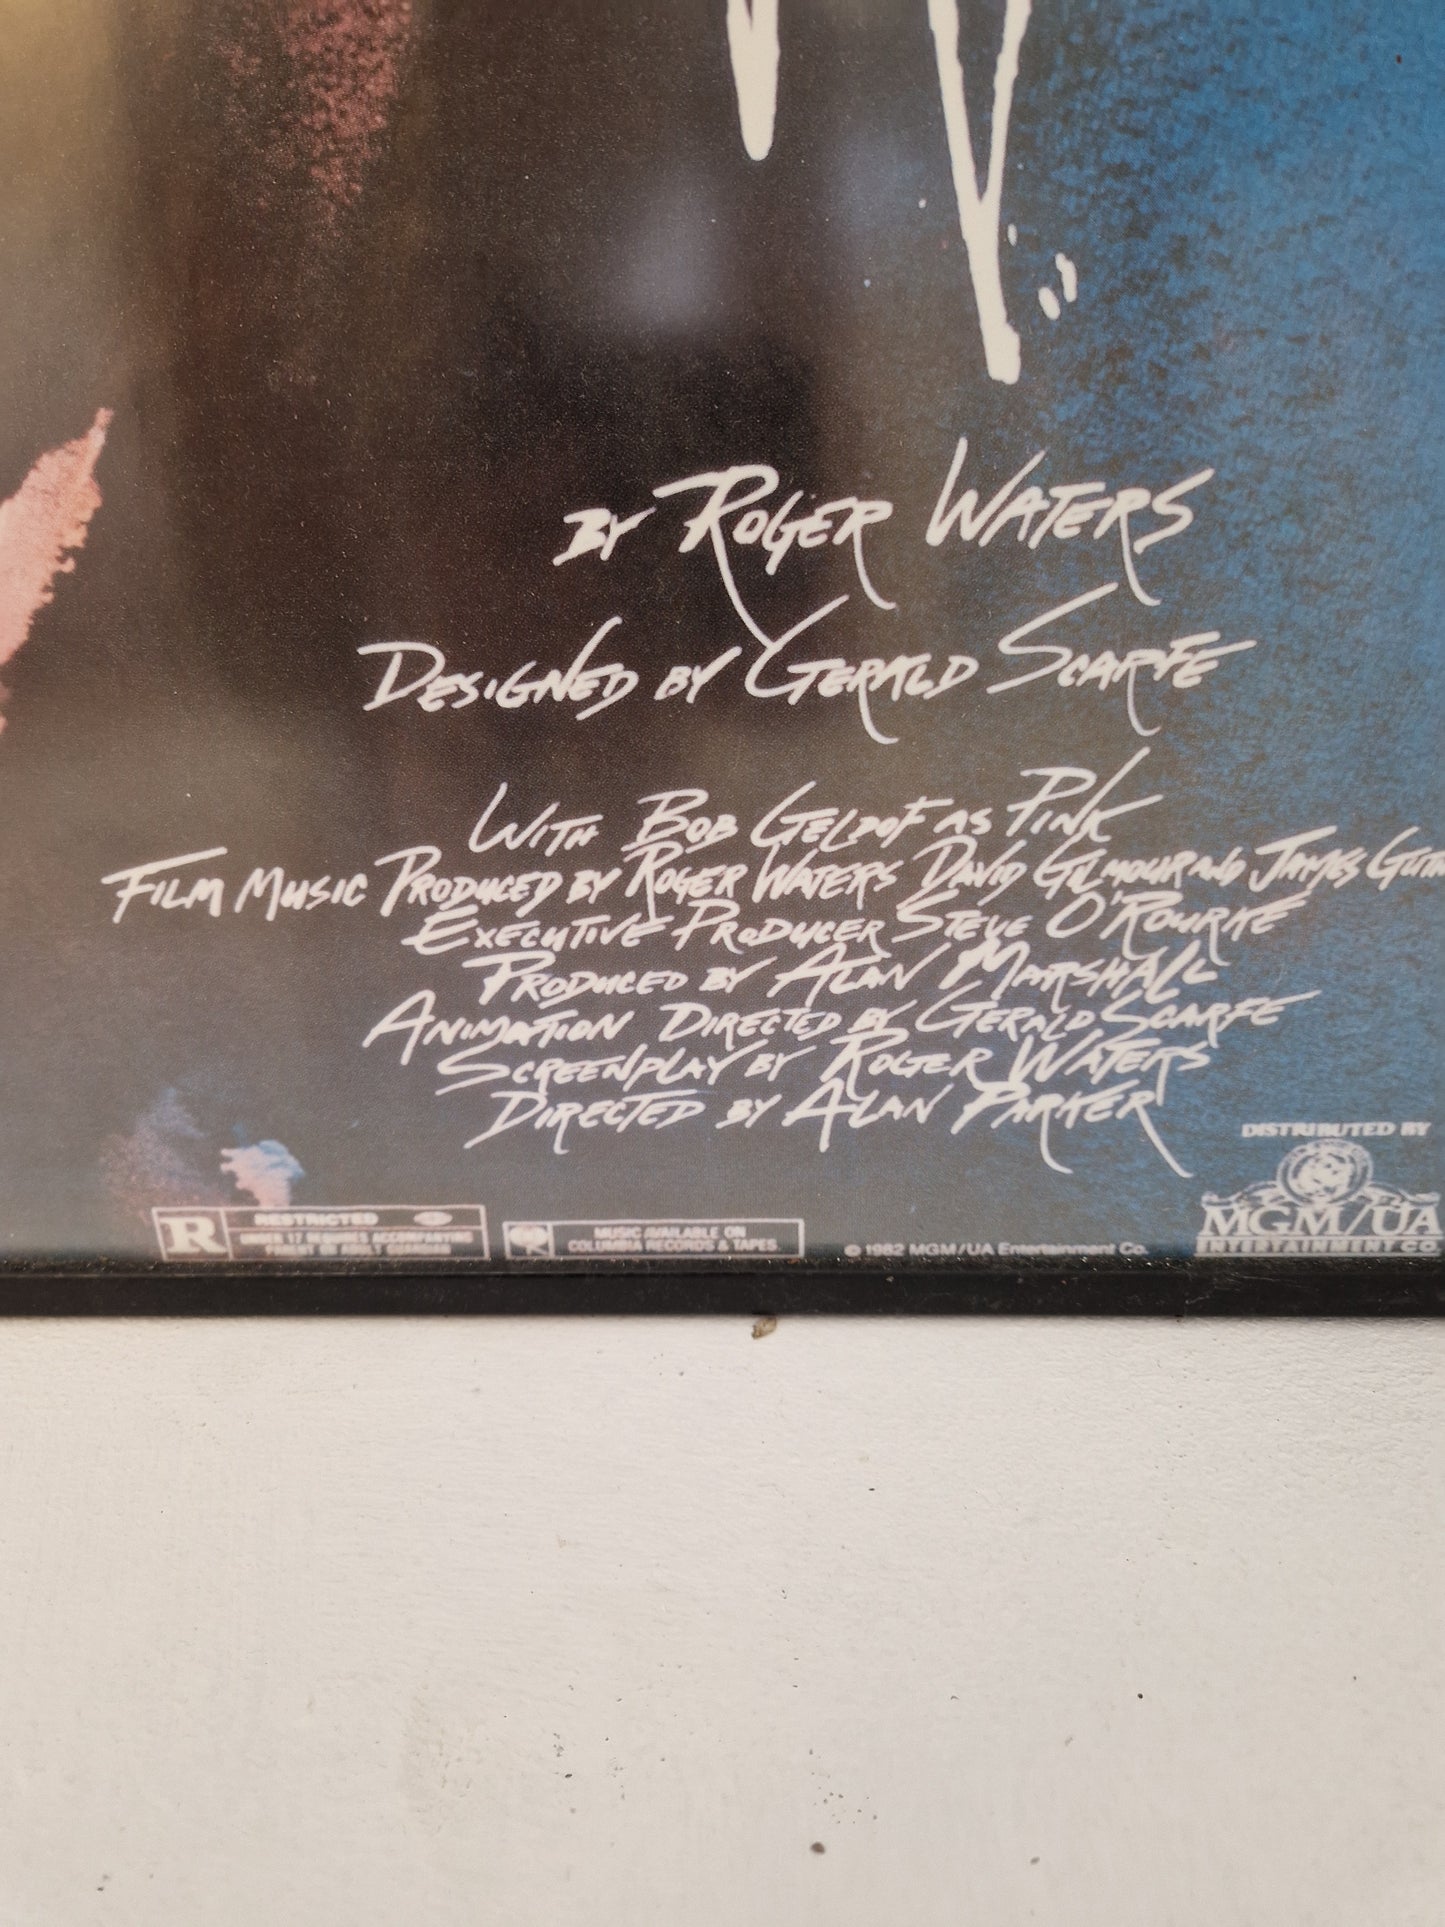 BY ROGER WATERS
DESIGNED BY GERALD SCARFE
WITH BOB GELDOF AS PINK
FILM MUSIC PRODUCED BY ROGER WATERS DAVID GILMOUR AND JAMES
EXECUTIVE PRODUCER STEVE O'ROURKE
PRODUCED BY ALAN MARSHALL
ANIMATION DIRECTED BY GERALD SCARFE
SCREENPLAY BY ROGER WATERS
DIRECTED BY ALAN PARKER
DISTRIBUTED BY
MGM/UA
ENTERTAINMENT CO.
R RESTRICTED
UNDER 17 REQUIRES ACCOMPANYING
PARENT OR ADULT GUARDIAN
MUSIC AVAILABLE ON
COLUMBIA RECORDS & TAPES
© 1982 MGM/UA Entertainment Co.